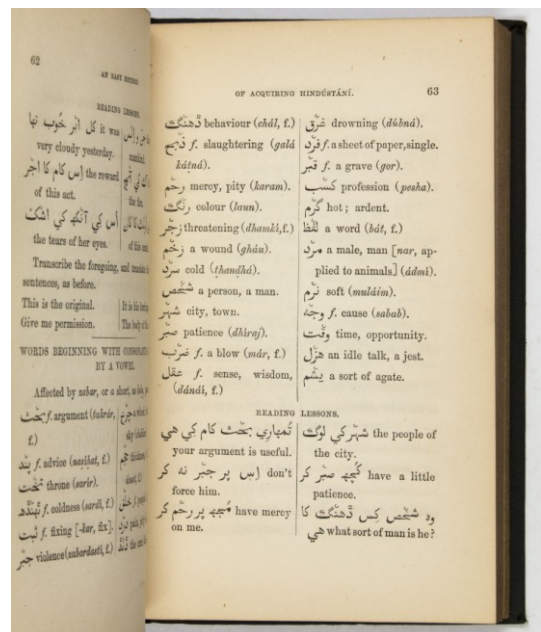 62
AN EASY METHOD
READING LESSONS.
کل ابر خُوب تها it was
very cloudy yesterday.
اِس کام کا اجر the reward
of this act.
اُس کي آنکھ کي اشک
the tears of her eyes.
Transcribe the foregoing, and translate
sentences, as before.
This is the original.
Give me permission.
WORDS BEGINNING WITH
BY A VOWEL.
Affected by zabar, or a short,
بحث f. argument (takrár,
f.)
پند f. advice (naṣíḥat, f.)
تخت throne (sarír).
ٹھنڈھ f. coldness (sardí, f.)
ثبت f. fixing [-kar, fix].
جبر violence (zabardastí, f.)
OF ACQUIRING HINDÚSTÁNÍ. 63
ڈھنگ behaviour (chál, f.)
ذبح f. slaughtering (galá
káṭná).
رحم mercy, pity (karam).
رنگ colour (laun).
زجر threatening (dhamkí, f.)
زخم a wound (gháu).
سرد cold (ṭhandhá).
شخص a person, a man.
شہر city, town.
صبر patience (dhíraj).
ضرب f. a blow (már, f.)
عقل f. sense, wisdom,
(dánáí, f.)
غرق drowning (dúbná).
فرد f. a sheet of paper, single.
قبر f. a grave (gor).
کسب profession (pesha).
گرم hot; ardent.
لفظ a word (bát, f.)
مرد a male, man [nar, ap-
plied to animals] (ádmí).
نرم soft (muláim).
وجہ f. cause (sabab).
وقت time, opportunity.
هزل an idle talk, a jest.
یشم a sort of agate.
READING LESSONS.
تُمهاري بحث کام کي هي
your argument is useful.
اِس پر جبر نہ کر don't
force him.
مُجھ پر رحم کر have mercy
on me.
شہر کي لوگ the people of
the city.
کُچھ صبر کر have a little
patience.
وہ شخص کِس ڈھنگ کا
هي what sort of man is he?